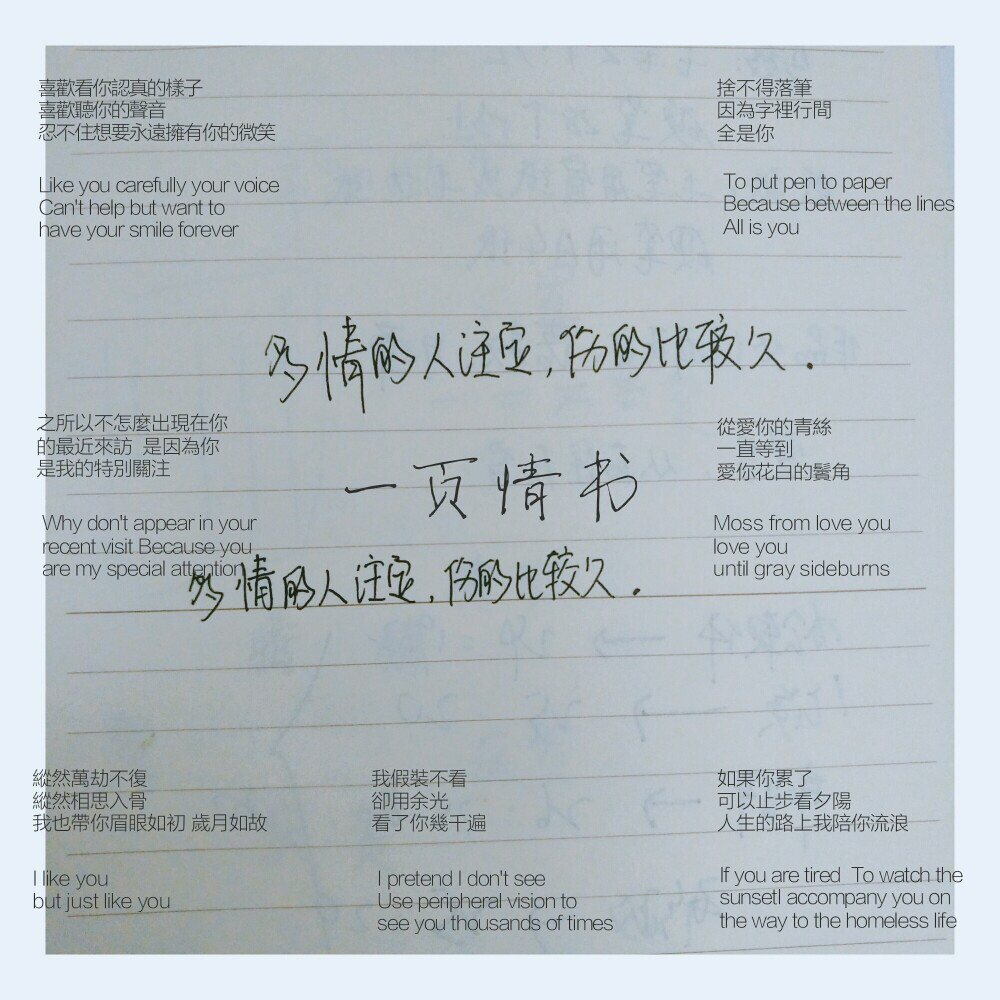 喜歡看你認真的樣子
喜歡聽你的聲音
忍不住想要永遠擁有你的微笑
Like you carefully your voice
Can't help but want to
have your smile forever
捨不得落筆
因為字裡行間
全是你
To put pen to paper
Because between the lines
All is you
多情的人注定,伤的比较久.
之所以不怎麼出現在你
的最近來訪 是因為你
是我的特別關注
Why don't appear in your
recent visit Because you
are my special attention
一页情书
從愛你的青絲
一直等到
愛你花白的鬢角
Moss from love you
love you
until gray sideburns
多情的人注定,伤的比较久.
縱然萬劫不復
縱然相思入骨
我也帶你眉眼如初 歲月如故
I like you
but just like you
我假裝不看
卻用余光
看了你幾千遍
I pretend I don't see
Use peripheral vision to
see you thousands of times
如果你累了
可以止步看夕陽
人生的路上我陪你流浪
If you are tired To watch the
sunsetI accompany you on
the way to the homeless life